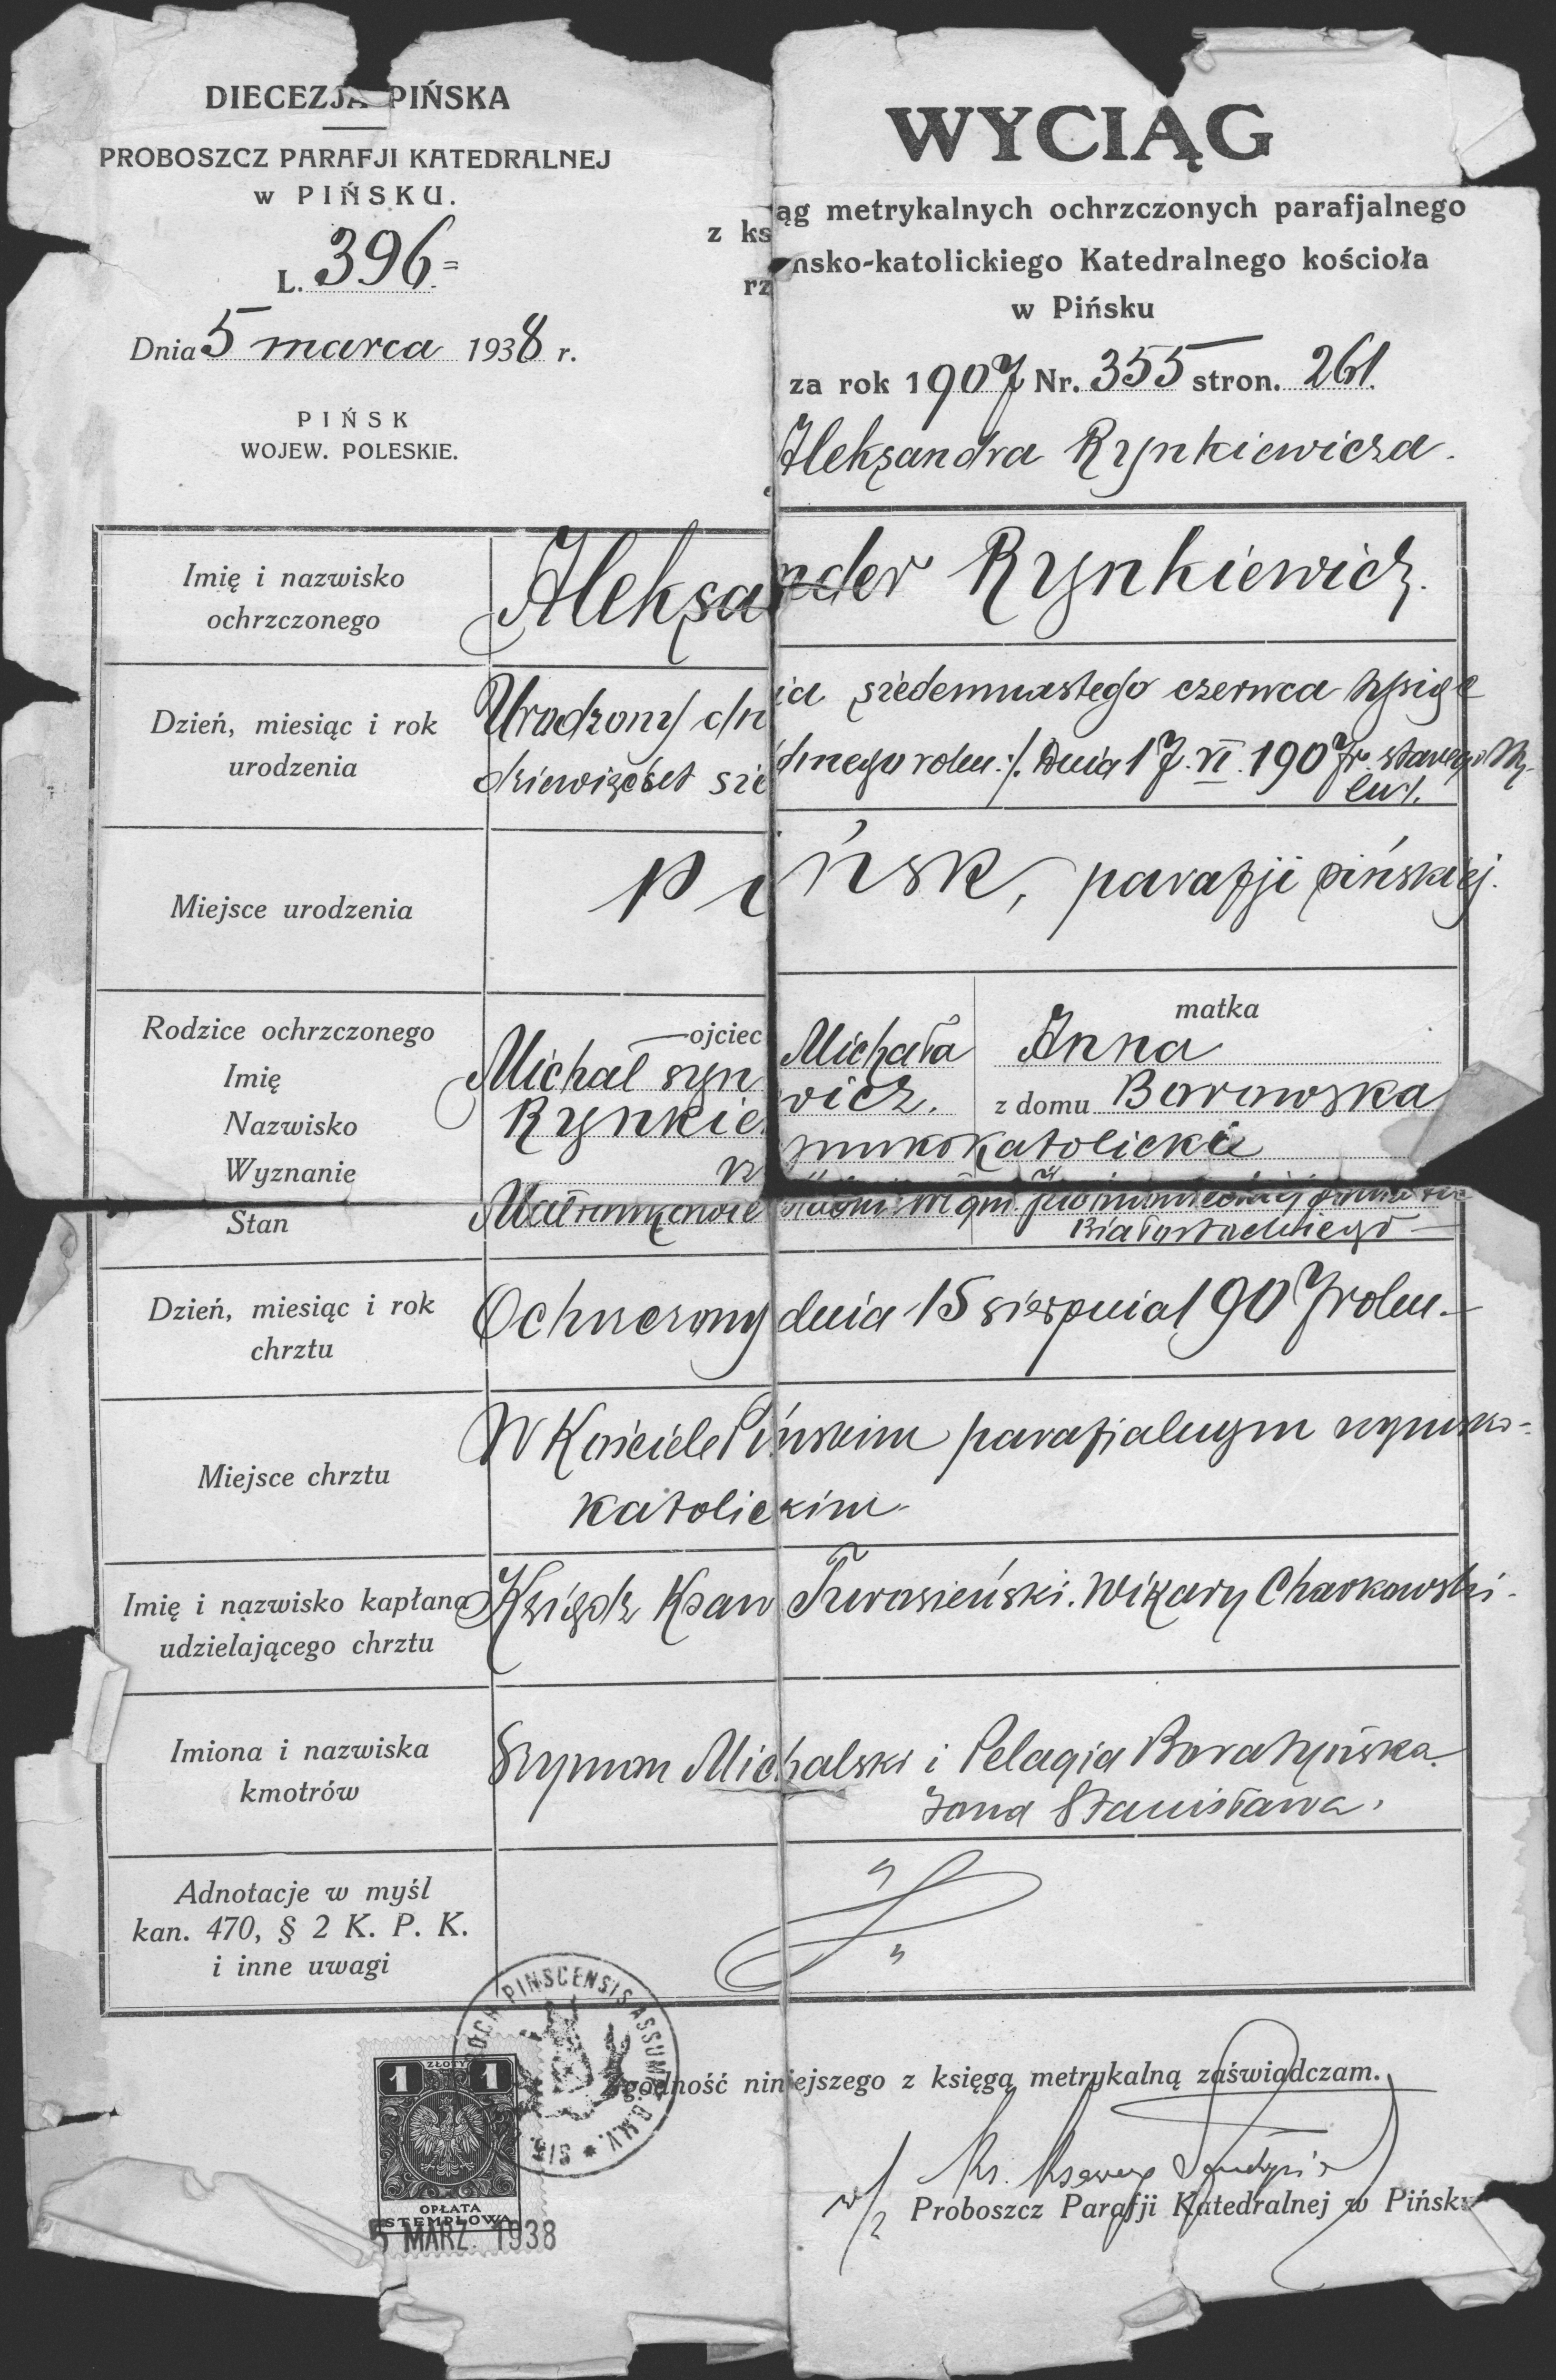 DIECEZJA PIŃSKA
PROBOSZCZ PARAFJI KATEDRALNEJ
w PIŃSKU.
L. 396=
Dnia 5 marca 1938 r.
PIŃSK
WOJEW. POLESKIE.
WYCIĄG
z ksiąg metrykalnych ochrzczonych parafjalnego
rz nsko-katolickiego Katedralnego kościoła
w Pińsku
za rok 1907 Nr. 355 stron. 261.
Aleksandra Rynkiewicza.
Imię i nazwisko
ochrzczonego
Aleksander Rynkiewicz.
Dzień, miesiąc i rok
urodzenia
Urodzony dnia siedemnastego czerwca tysiąc
dziewięćset siedmego roku :/. Dnia 17.VI.1907 r. starego sty-
lu/.
Miejsce urodzenia
Pińsk, parafji pińskiej.
Rodzice ochrzczonego
Imię
Nazwisko
Wyznanie
Stan
ojciec
Michał syn Michała
Rynkiewicz.
matka
Anna
z domu Borowska
rzymskokatolickie
Białostockiego
Dzień, miesiąc i rok
chrztu
Ochrzczony dnia 15 sierpnia 1907 roku.
Miejsce chrztu
W Kościele Pińskim parafjalnym rzymsko-
katolickim.
Imię i nazwisko kapłana
udzielającego chrztu
Ksiądz Ksaw Wikary Charkowski.
Imiona i nazwiska
kmotrów
Szymon Michalski i Pelagia Boratyńska
żona Stanisława.
Adnotacje w myśl
kan. 470, § 2 K. P. K.
i inne uwagi
PINSCENSIS ASSUMP. B.M.V.
Zgodność niniejszego z księgą metrykalną zaświadczam.
1 ZŁOTY 1
OPŁATA
STEMPLOWA
5 MARZ. 1938
w/z
Proboszcz Parafji Katedralnej w Pińsku